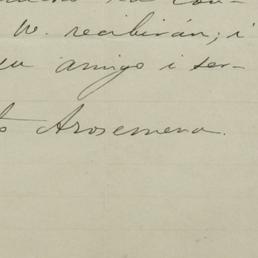 la con-
W. recibirán; i
su amigo i ser-
to Arosemena.